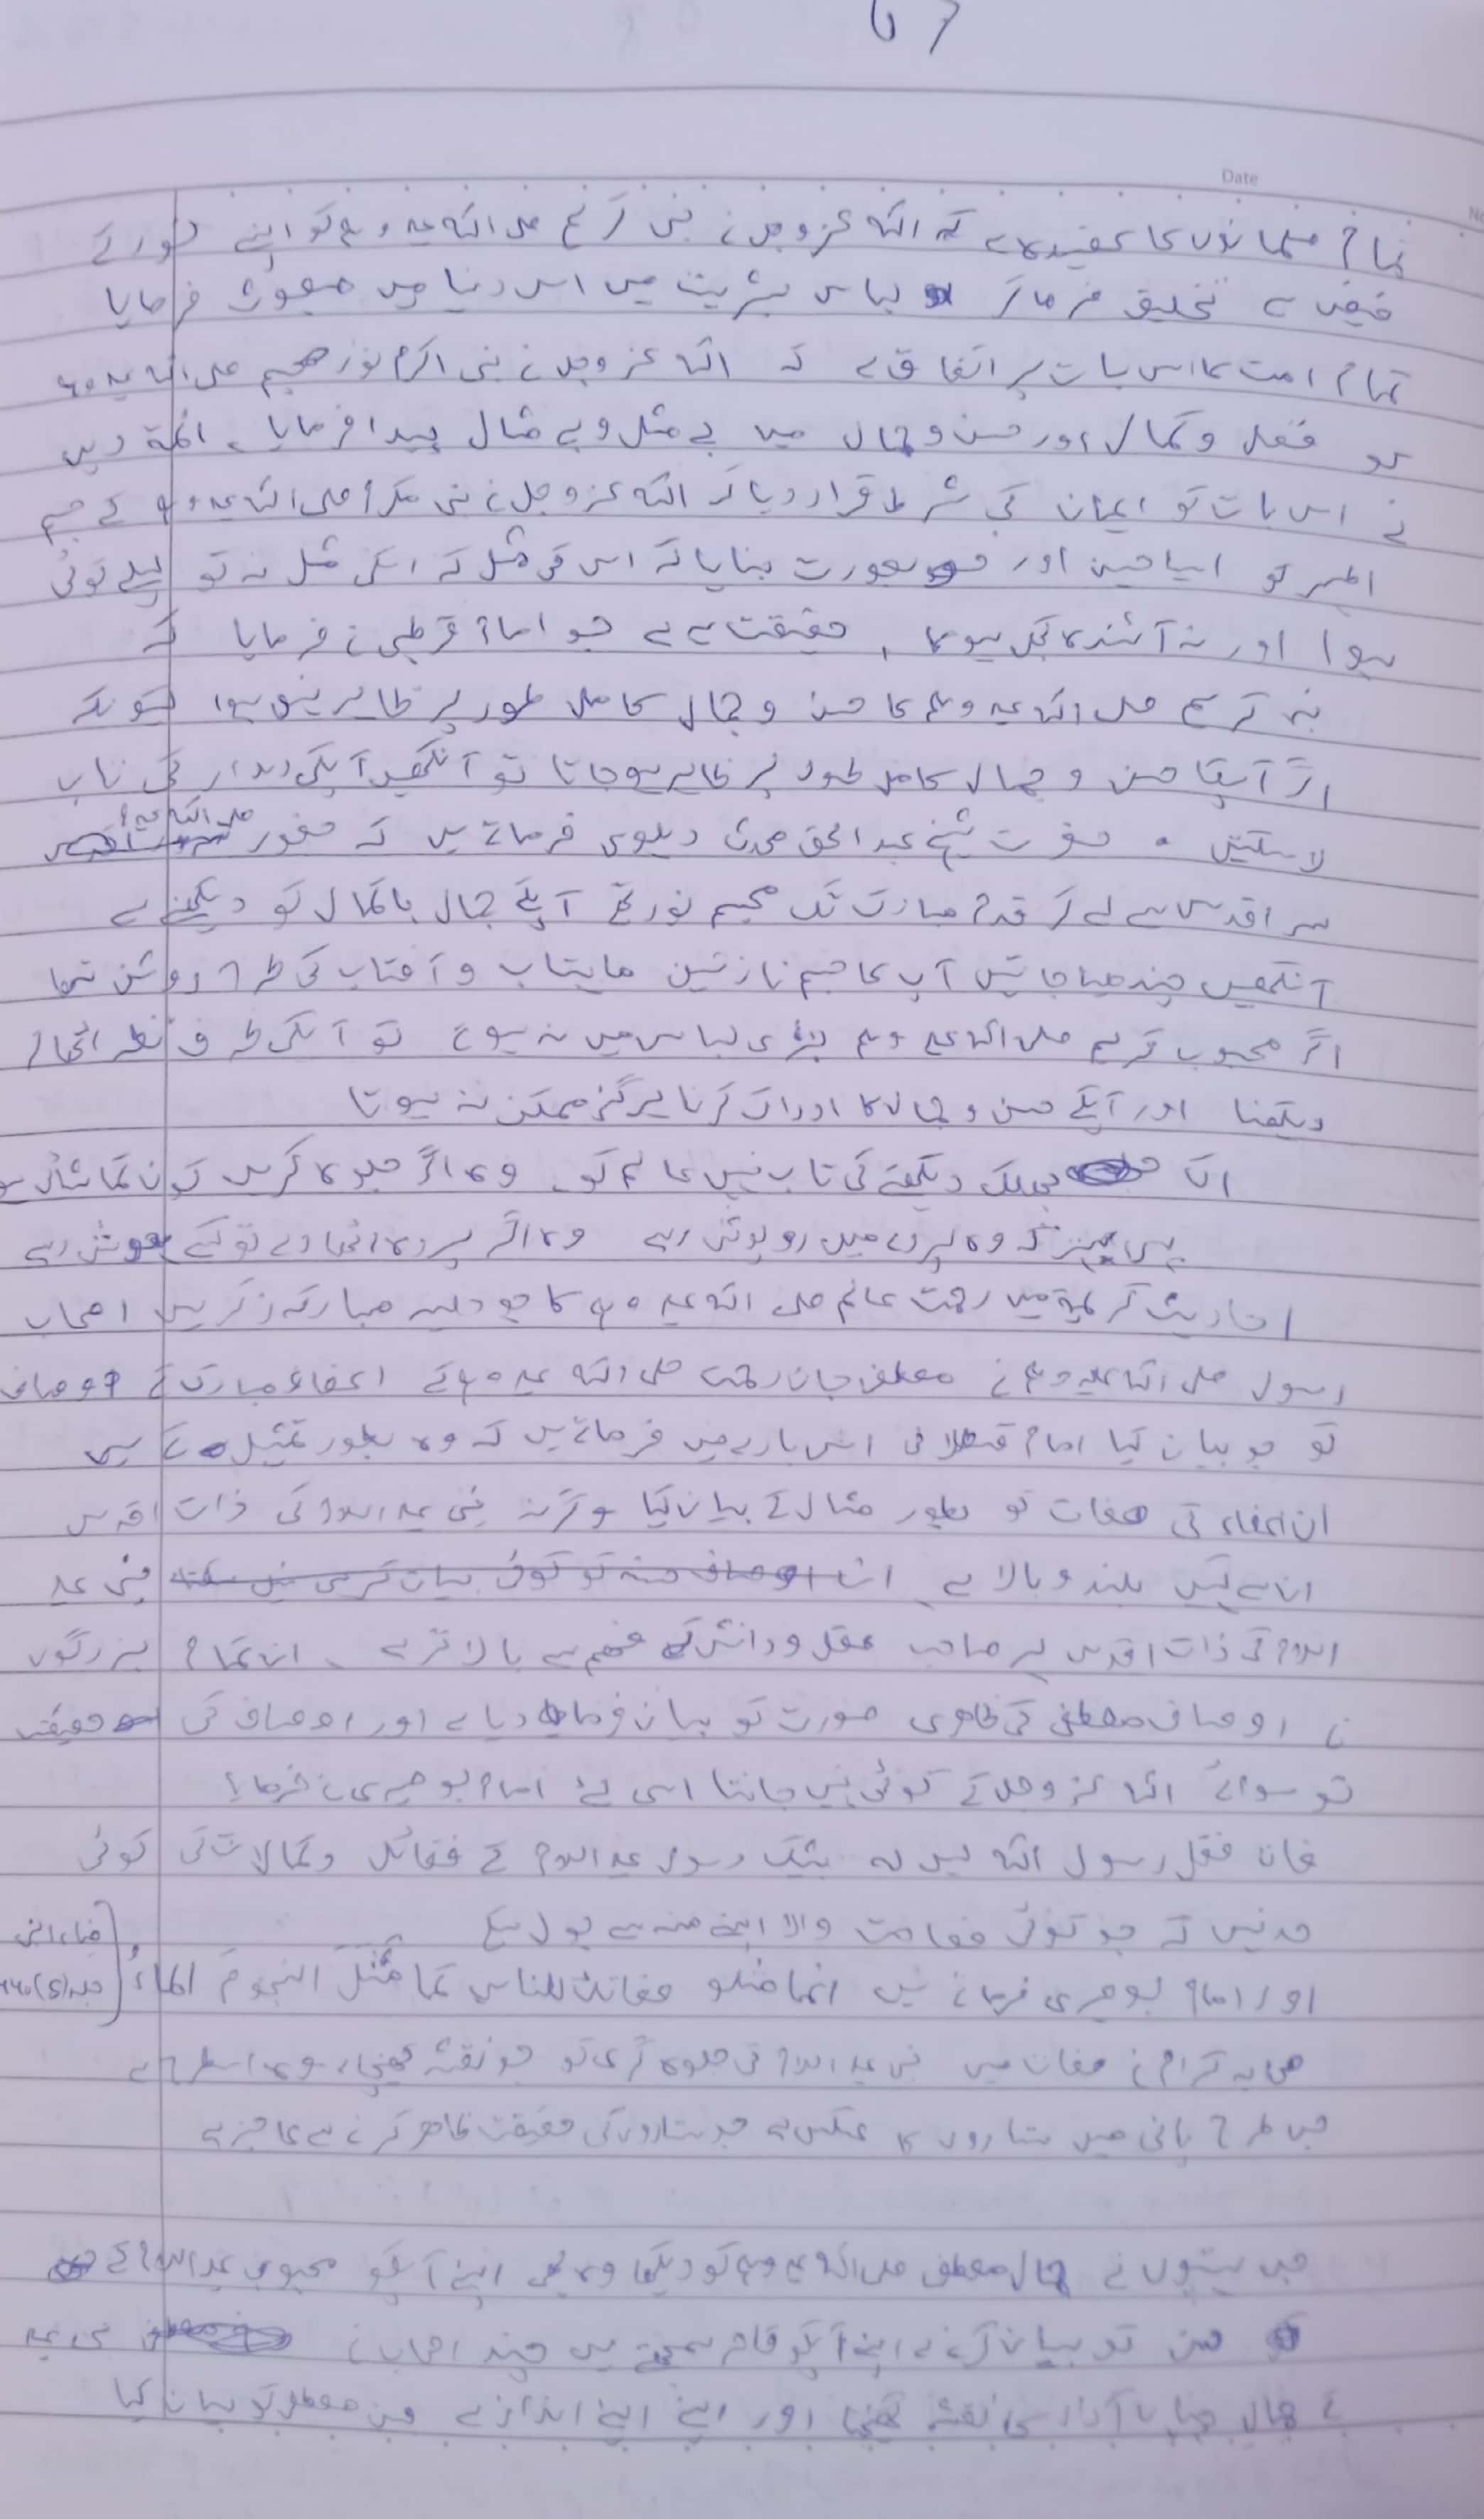 67
Date
تمام مسلمانوں کا عقیدہ ہے کہ اللہ عزوجل نے نبی کریم صلی اللہ علیہ وسلم کو اپنے نور کے
فیض سے تخلیق فرما کر لباس بشریت میں اس دنیا میں مبعوث فرمایا
تمام امت کا اس بات پر اتفاق ہے کہ اللہ عزوجل نے نبی اکرم نور مجسم صلی اللہ علیہ وسلم
کو فضل و کمال اور حسن و جمال میں بے مثل و بے مثال پیدا فرمایا۔ ائمۃ دین
نے اس بات کو ایمان کی شرط قرار دیا کہ اللہ عزوجل نے نبی مکرم صلی اللہ علیہ وسلم کے جسم
اطہر کو ایسا حسین اور خوبصورت بنایا کہ اس کی مثل کہ اسکی مثل نہ تو پہلے کوئی
ہوا اور نہ آئندہ کبھی ہوگا، حقیقت یہ ہے جو امام قرطبی نے فرمایا کہ
نبی کریم صلی اللہ علیہ وسلم کا حسن و جمال کامل طور پر ظاہر نہیں ہوا کیونکہ
اگر آپکا حسن و جمال کامل طور پر ظاہر ہوجاتا تو آنکھیں آپکی دیدار کی تاب
لا سکتیں ۔ حضرت شیخ عبد الحق محدث دہلوی فرماتے ہیں کہ حضور صلی اللہ علیہ
سر اقدس سے لے کر قدم مبارک تک مجسم نور تھے آپکے جمال باکمال کو دیکھنے سے
آنکھیں چندھیا جاتیں آپ کا جسم نازنین ماہتاب و آفتاب کی طرح روشن تھا
اگر محبوب کریم صلی اللہ علیہ وسلم بشری لباس میں نہ ہوتے تو آپکی طرف نظر اٹھا کے
دیکھنا اور آپکے حسن و جمال کا ادراک کرنا ہرگز ممکن نہ ہوتا
اک جھلک دیکھنے کی تاب نہیں عالم کو۔ وہ اگر جلوہ کریں کون تماشائی ہو
یہی بہتر کہ وہ پردے میں روپوش رہے وہ اگر پردہ اٹھا دے تو کسے ہوش رہے
احادیث کریمۃ میں رحمت عالم صلی اللہ علیہ وسلم کا جو حلیہ مبارکہ ذکر ہیں اصحاب
رسول صلی اللہ علیہ وسلم نے مصطفی جان رحمت صلی اللہ علیہ وسلم کے اعضاء مبارک کے اوصاف
کو جو بیان کیا امام قسطلانی اس بارے میں فرماتے ہیں کہ وہ بطور تمثیل کے ہیں
ان اعضاء کی صفات کو بطور مثال کے بیان کیا وگرنہ نبی علیہ السلام کی ذات اقدس
ان سے کہیں بلند و بالا ہے نبی علیہ
السلام کی ذات اقدس ہر صاحب عقل و دانش کی فہم سے بالاتر ہے ۔ ان تمام بزرگوں
نے اوصاف مصطفی کی ظاہری صورت کو بیان فرما دیا ہے اور اوصاف کی حقیقت
تو سوائے اللہ عزوجل کے کوئی نہیں جانتا اسی لئے امام بوصیری نے فرمایا
فان فضل رسول اللہ لیس لہ بیشک رسول علیہ السلام کے فضائل و کمالات کی کوئی
حد نہیں کہ جو کوئی فصاحت والا اپنے منہ سے بول سکے
اور امام بوصیری فرماتے ہیں انما مثلو صفاتک للناس کما مثل النجوم الماء
صحابہ کرام نے صفات میں نبی علیہ السلام کی جلوہ گری کو جو نقشہ کھینچا، وہ اسطرح ہے
جس طرح پانی میں ستاروں کا عکس ہے جو ستاروں کی حقیقت ظاہر کرنے سے عاجز ہے
جن ہستیوں نے جمال مصطفی صلی اللہ علیہ وسلم کو دیکھا وہ بھی اپنے آپکو محبوب علیہ السلام کے
حسن کو بیان کرنے سے اپنے آپکو قاصر سمجھتے ہیں چند اصحاب نے
کے جمال جہاں آراء کا نقشہ کھینچا اور اپنے اپنے انداز سے حسن مصطفی کو بیان کیا